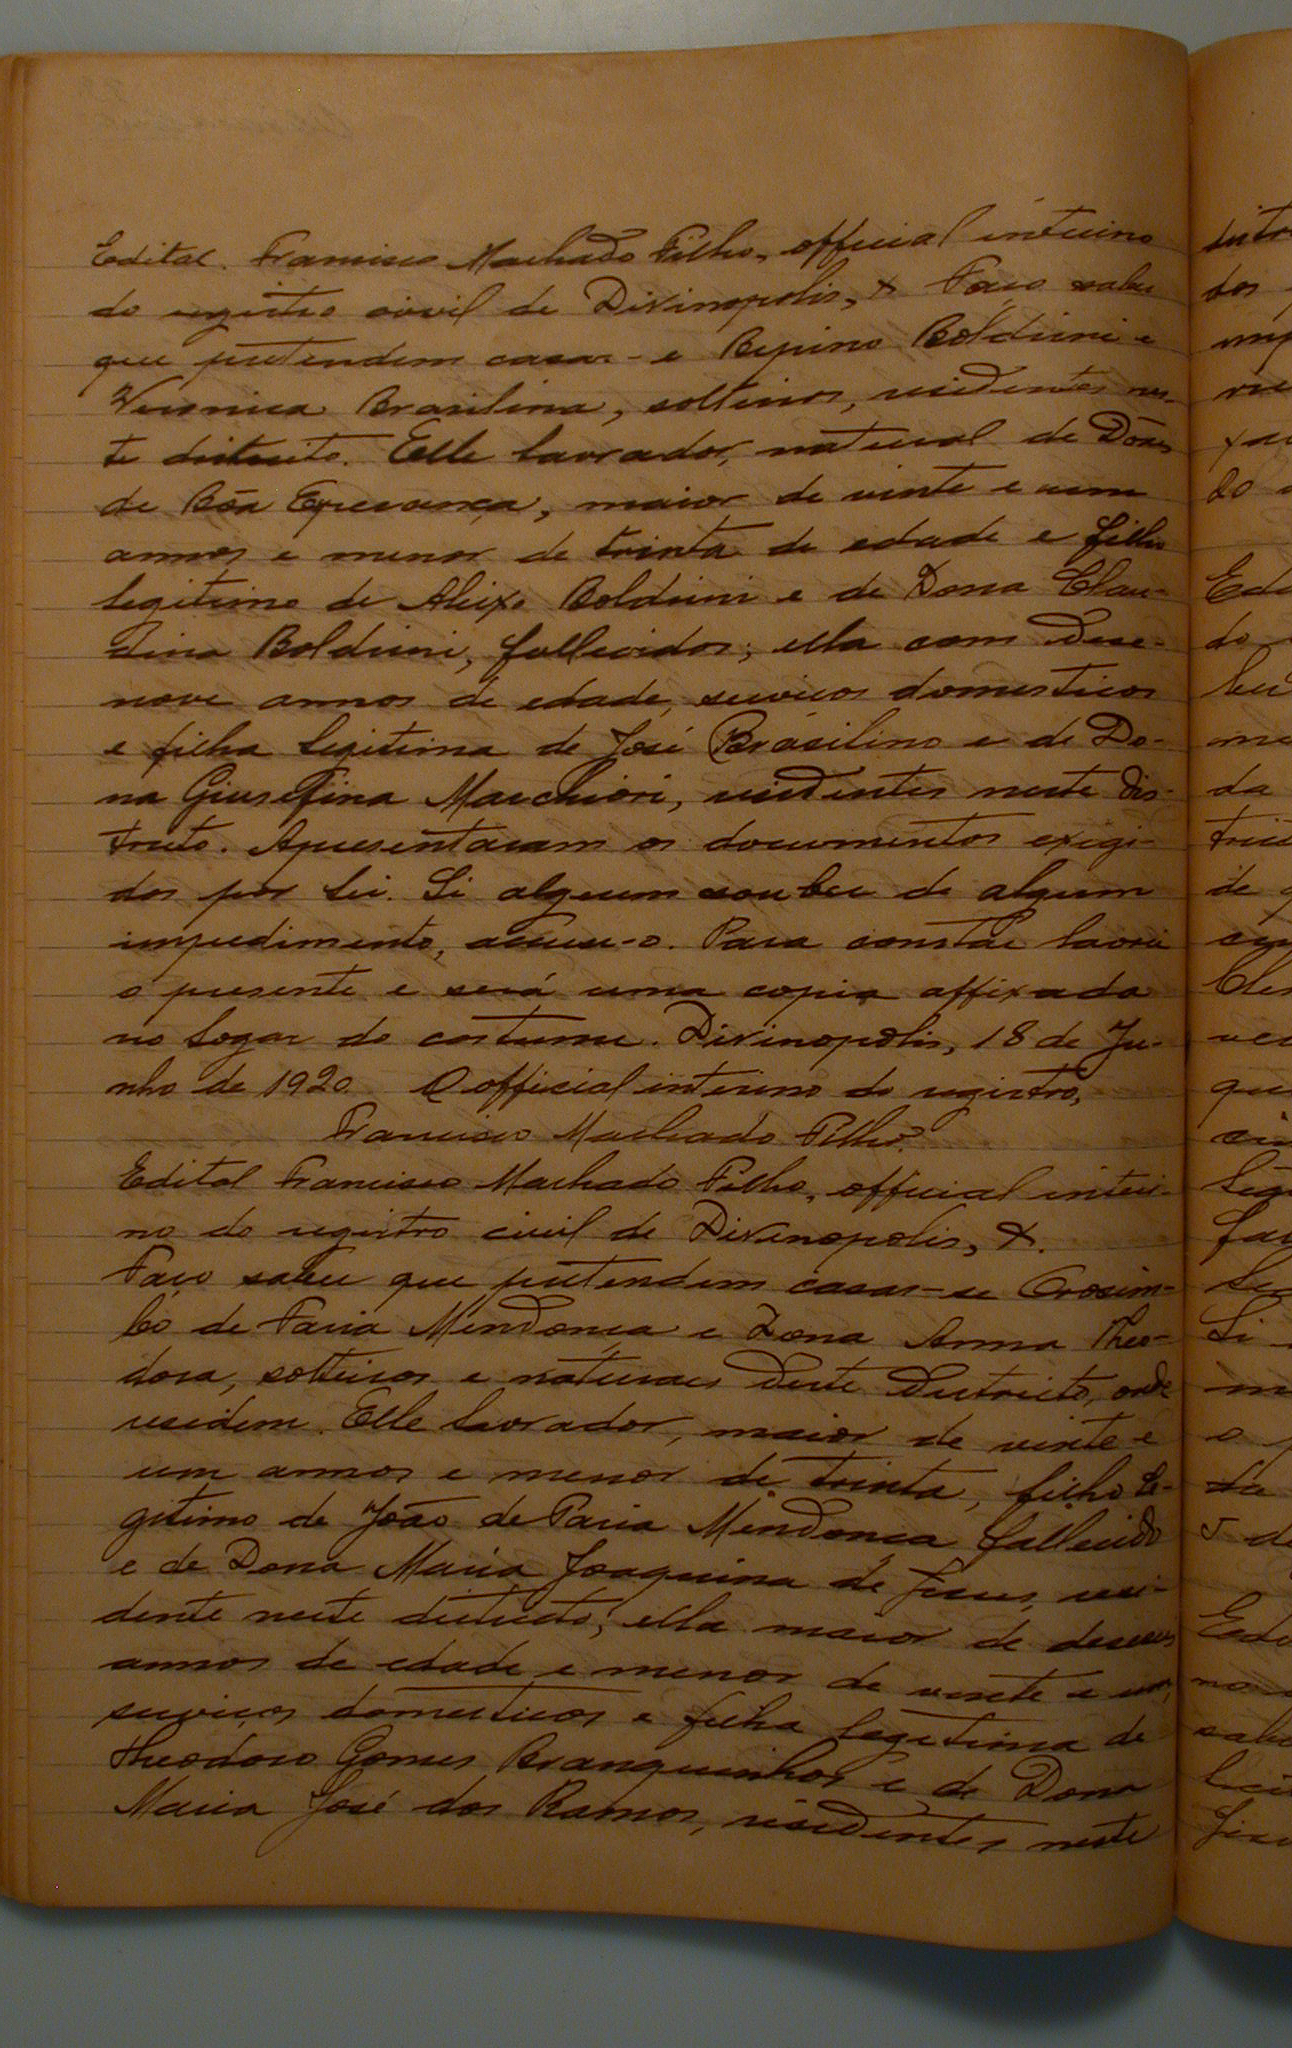 Edital. Francisco Machado Filho, official interino
do registro civil de Divinopolis, & Faço saber
que pretendem casar-e Bepino Boldrini e
Veronica Brasilina, solteiros, residentes nes-
te districto. Elle lavrador, natural de Dôres
de Bôa Esperança, maior de vinte e um
annos e menor de trinta de edade e filho
legitimo de Aleixo Boldrini e de Dona Clau-
dina Boldrini, fallecidos; ella com deze-
nove annos de edade, serviços domesticos
e filha legitima de José Brasilino e de Do-
na Giusefina Marchiori, residentes neste dis-
tricto. Apresentaram os documentos exigi-
dos por lei. Si alguem souber de algum
impedimento, accuse-o. Para constar lavrei
o presente e será uma copia affixada
no logar do costume. Divinopolis, 18 de Ju-
nho de 1920. O official interino do registro,
Francisco Machado Filho.
Edital Francisco Machado Filho, official interi-
no do registro civil de Divinopolis, &.
Faço saber que pretendem casar-se Orosim-
bo de Faria Mendonça e Dona Anna Theo-
dora, solteiros e naturaes deste districto, onde
residem. Elle lavrador, maior de vinte e
um annos e menor de trinta, filho le-
gitimo de João de Faria Mendonça fallecido
e de Dona Maria Joaquina de Jesus, resi-
dente neste districto; ella maior de deseseis
annos de edade e menor de vinte e um,
serviços domesticos e filha legitima de
Theodoro Gomes Branquinhos e de Dona
Maria José dos Ramos, residentes neste